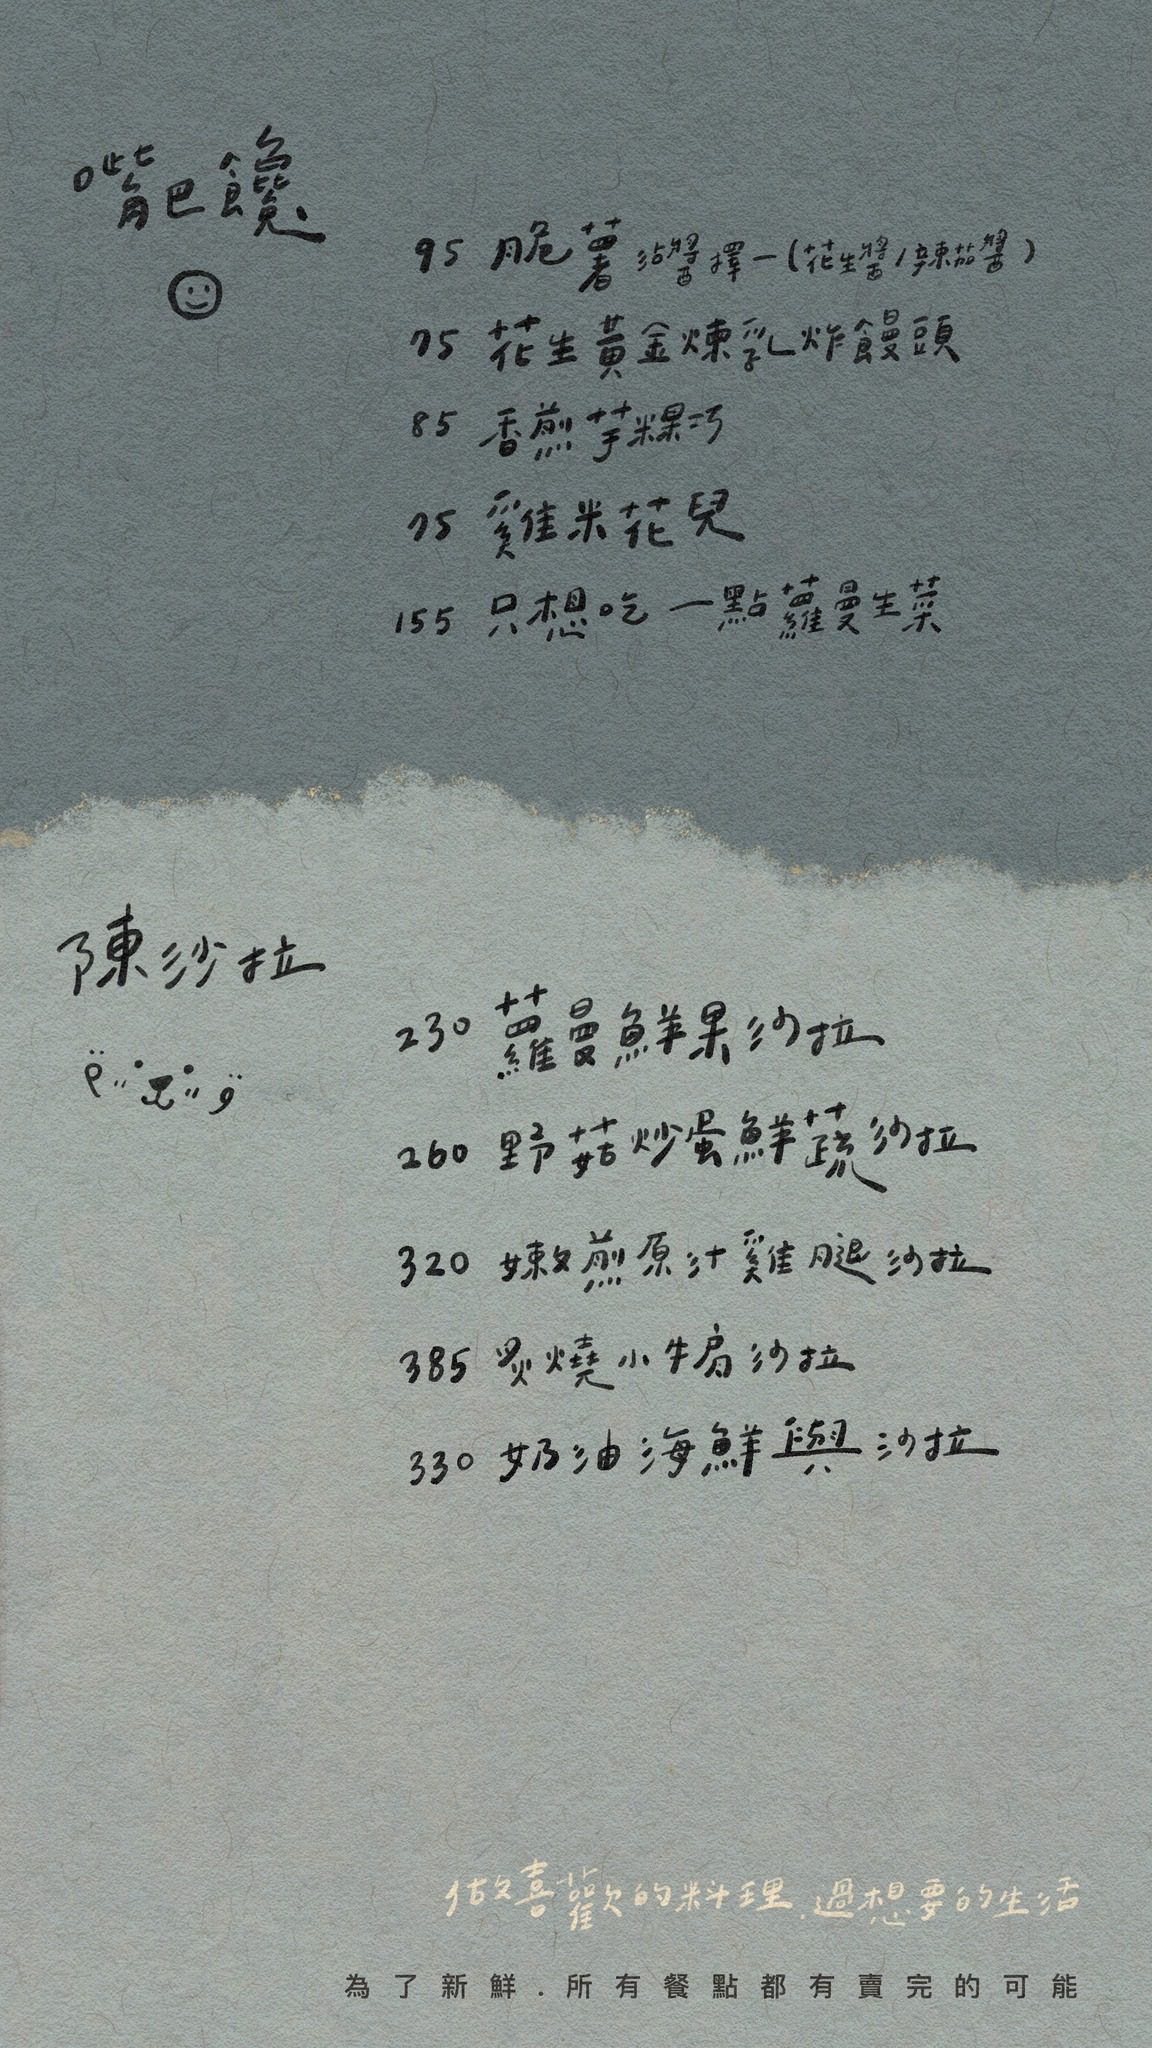 嘴巴饞
95 脆薯 沾醬擇一(花生醬/辣茄醬)
75 花生黃金煉乳炸饅頭
85 香煎芋粿巧
75 雞米花兒
155 只想吃一點蘿曼生菜
陳沙拉
230 蘿曼鮮果沙拉
260 野菇炒蛋鮮蔬沙拉
320 嫩煎原汁雞腿沙拉
385 炙燒小牛肩沙拉
330 奶油海鮮與沙拉
做喜歡的料理.過想要的生活
為了新鮮.所有餐點都有賣完的可能